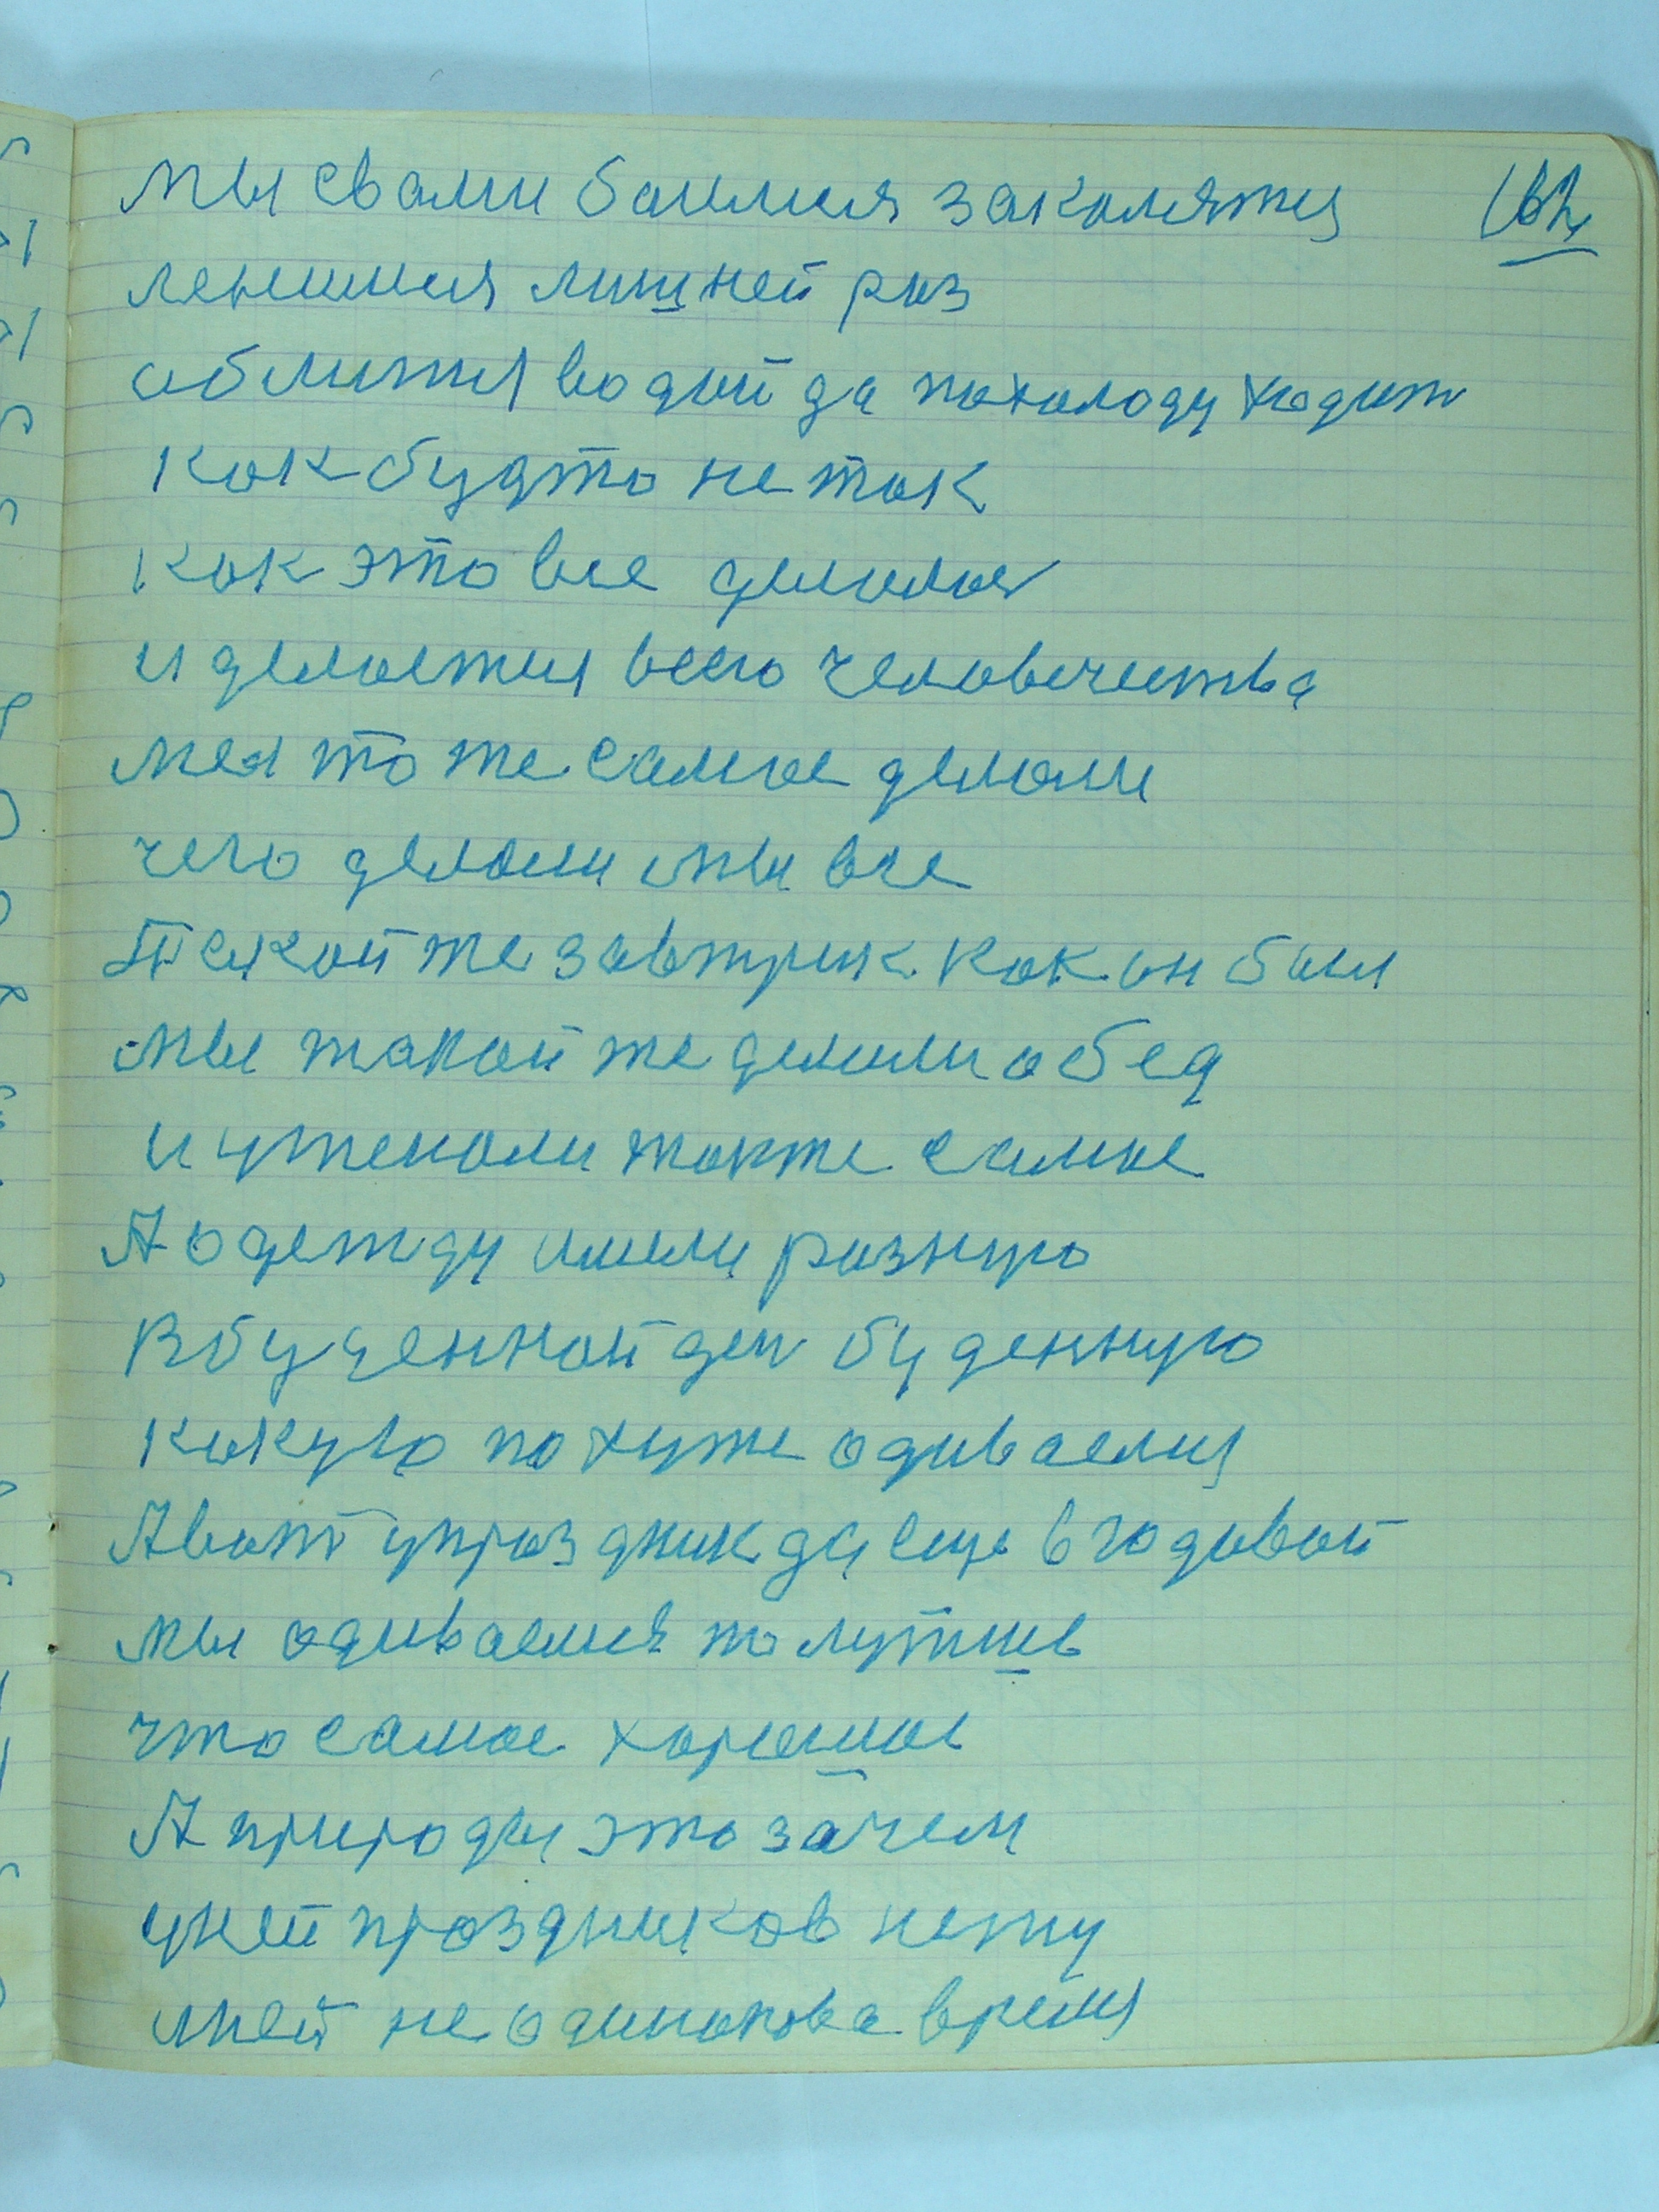 мы свами боимся заколятця 162
ленимся лишней раз
облитя водой да похолоду ходит
как будто не так
как это все делалос
и делоется всего человечества
мея то же самое делали
чего делаем мы все
Такой же завтрик как он был
мы такой же делили обед
и утеноли тоже самое
А одежду имели разную
В буденной ден буденную
какую похуже одиваемся
А вот у праздник да еще в годовой
мы одиваемся то лутше
что самое хорошое
А природы это зачем
у ней праздников нету
у ней не одинакова время